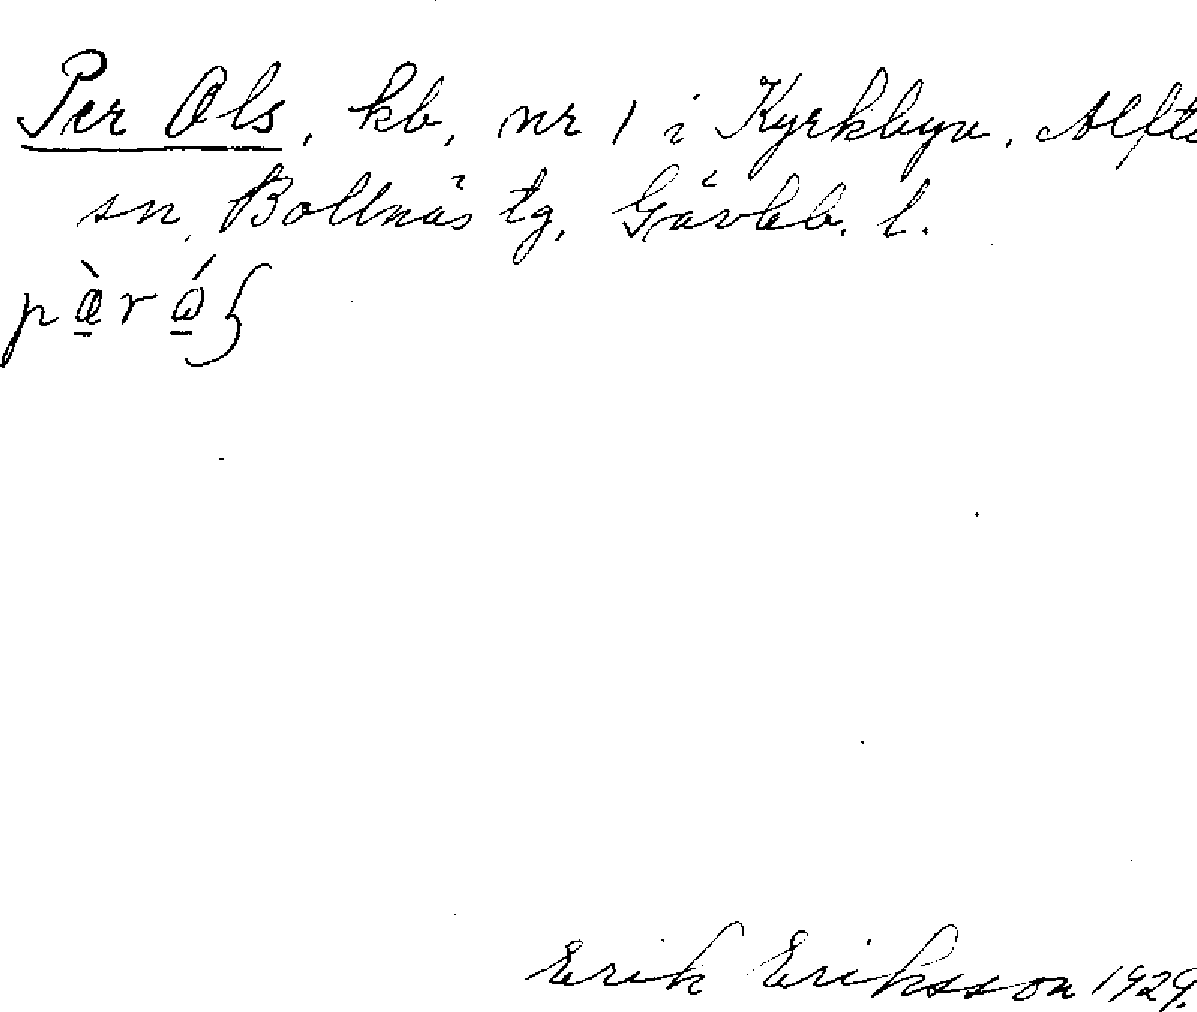 Per Ols, kb. nr 1 i Kyrkbyn, Alfta
sn, Bollnäs tg, Gävleb. l.
Erik Eriksson 1929.